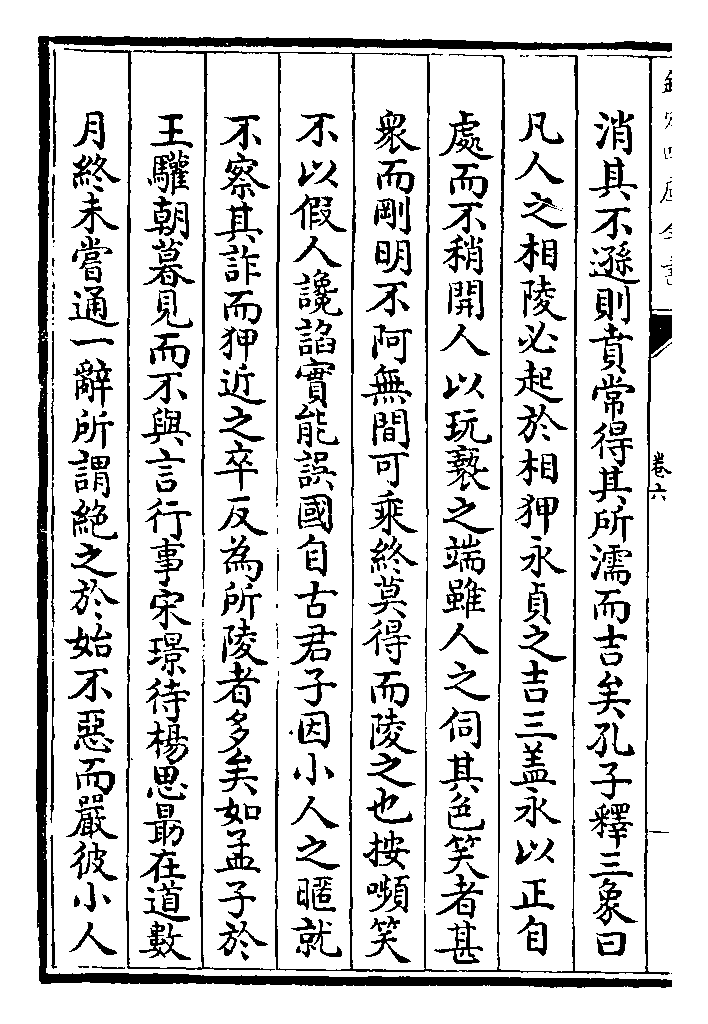 欽定四庫全書
卷六
消其不遜則賁常得其所濡而吉矣孔子釋三象曰
凡人之相陵必起於相狎永貞之吉三盖永以正自
處而不稍開人以玩褻之端雖人之伺其色笑者甚
衆而剛明不阿無間可乘終莫得而陵之也按嚬笑
不以假人讒謟實能誤國自古君子因小人之暱就
不察其詐而狎近之卒反為所陵者多矣如孟子於
王驩朝暮見而不與言行事宋璟待楊思朂在道數
月終未嘗通一辭所謂絶之於始不惡而嚴彼小人